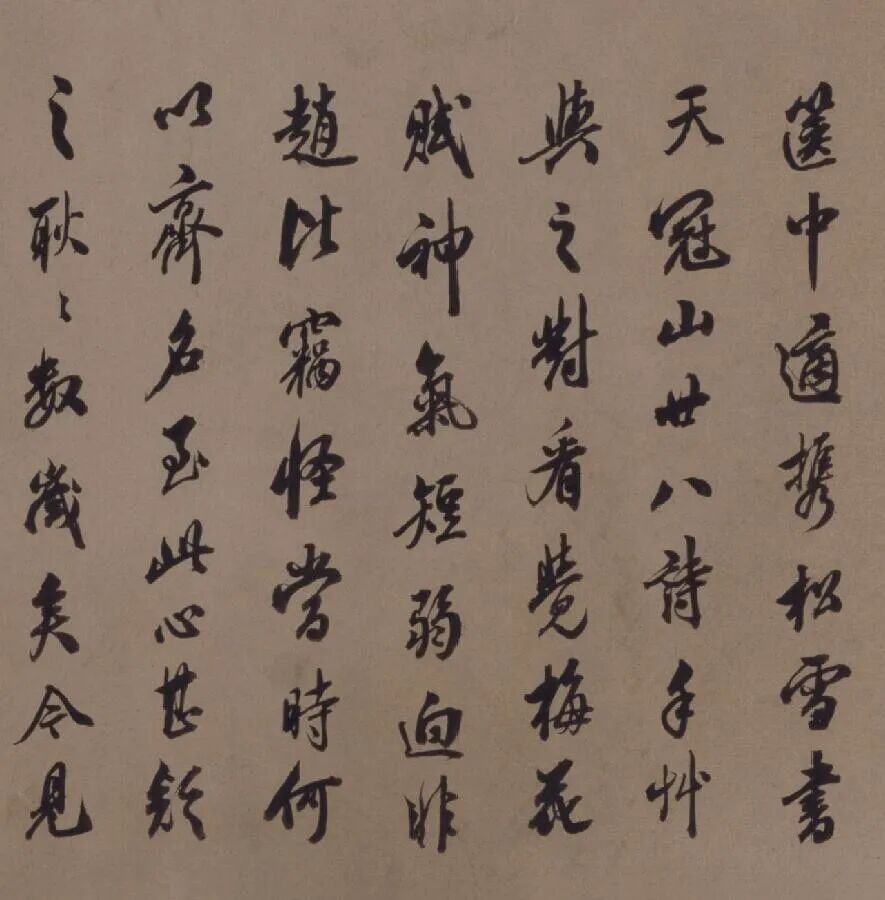 篋中適携松雪書
天冠山廿八詩手艸
與之對看覺梅花
賦神氣短弱迥非
趙比竊怪當時何
以齊名至此心甚疑
之耿〻數歲矣今見